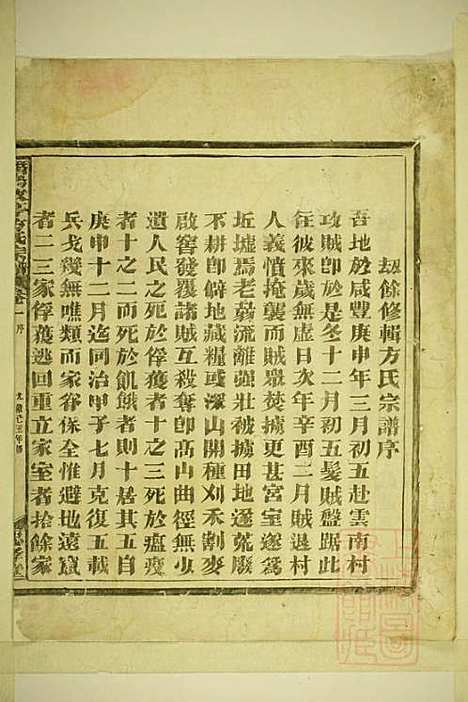 刼餘修輯方氏宗譜序
吾地於咸豐庚申年三月初五赴雲南村
攻賊卽於是冬十二月初五髮賊盤踞此
彼來歲無虛日次年辛酉二月賊退村
人義憤掩襲而賊眾焚擄更甚宮室遂爲
近墟焉老弱流離强壯被擄田地遂荒廢
不耕卽僻地藏糧或深山開種刈禾割麥
啟窖發覆諸賊互殺奪卽高山曲徑無少
遺人民之死於俘獲者十之三死於瘟疫
者十之二而死於飢餓者則十居其五自
庚申十二月迄同治甲子七月克復五載
兵戈幾無噍類而家眷保全惟避地遠竄
者二三家俘獲逃回重立家室者拾餘家
方氏宗譜 卷一 序